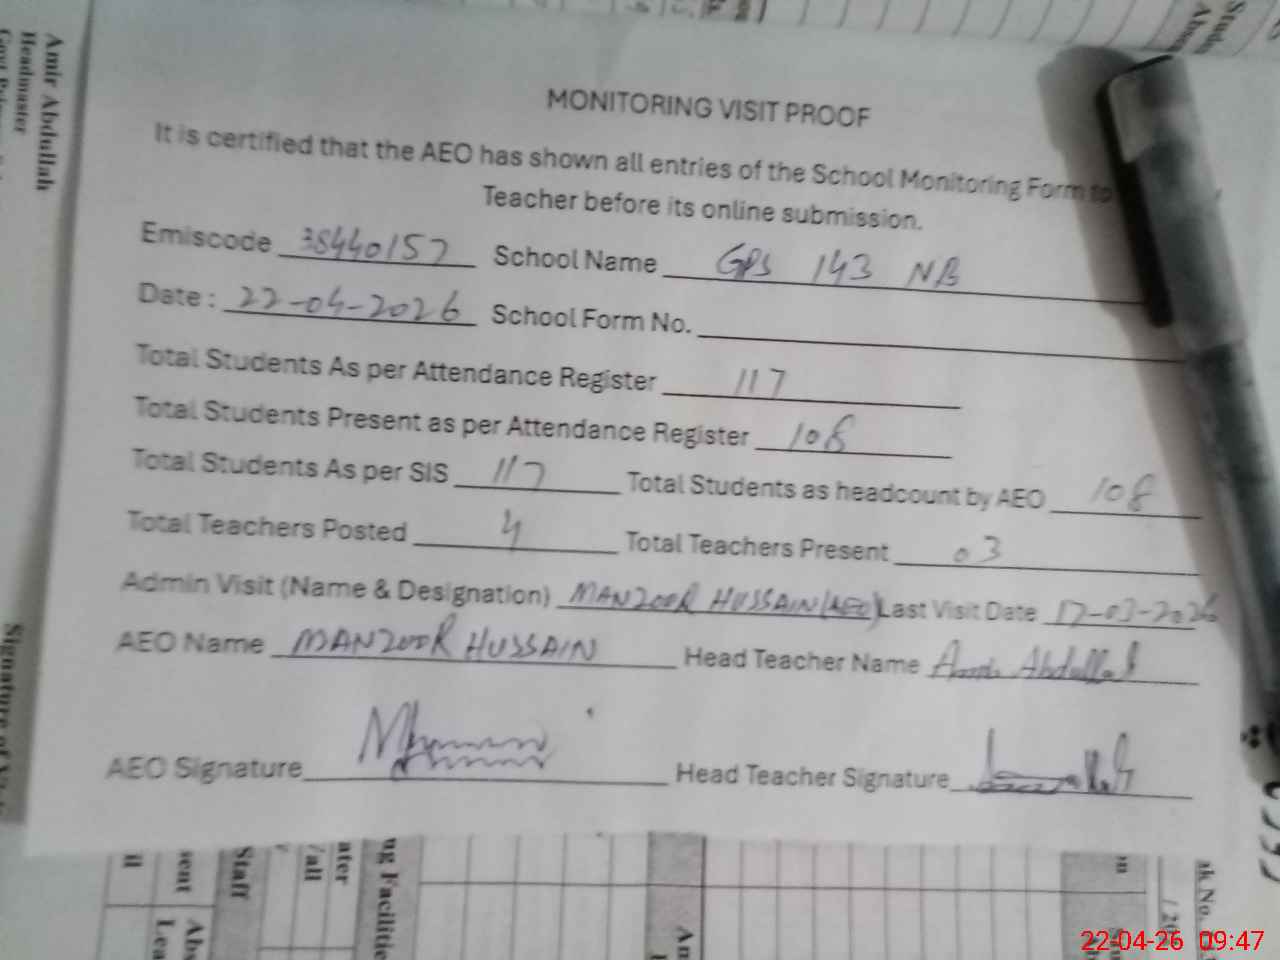 MONITORING VISIT PROOF
It is certified that the AEO has shown all entries of the School Monitoring Form to
Teacher before its online submission.
Emiscode 38440157 School Name GPS 143 NB
Date : 22-04-2026 School Form No.
Total Students As per Attendance Register 117
Total Students Present as per Attendance Register 108
Total Students As per SIS 117 Total Students as headcount by AEO 108
Total Teachers Posted 4 Total Teachers Present 03
Admin Visit (Name & Designation) MANZOOR HUSSAIN (AEO) Last Visit Date 17-03-2026
AEO Name MANZOOR HUSSAIN Head Teacher Name Abdullah
AEO Signature Head Teacher Signature
Amir Abdullah
Headmaster
Signature of
Staff
22-04-26 09:47